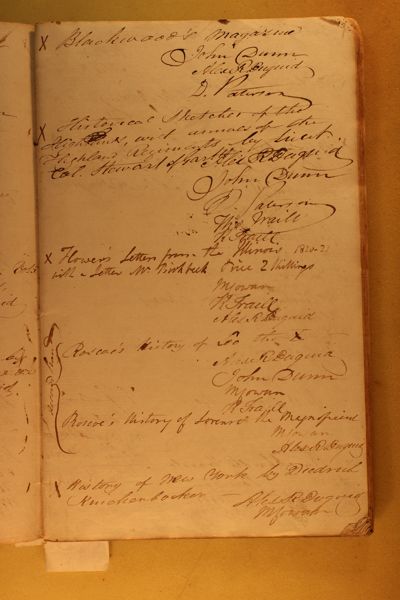 x Blackwood's Magazine
John Dunn
Alex R Duguid
D. Paterson
x Historical Sketches of the
Highlands, with of the
Highland Regiments by Lieut
Col. Stewart of Garth Alex R Duguid
John Dunn
Paterson
Thos Traill
Traill
x Flower's Letters from the Illinois 1820-21
with a Letter Mr Birkbeck Price 2 Shillings
W Traill
Alex R Duguid
Roscoe's History of Leo the X
Alex R Duguid
John Dunn
W Traill
Roscoe's History of Lorenzo the Magnificent
Alex R Duguid
History of New York by Diedrich
Knickerbocker
Alex R Duguid